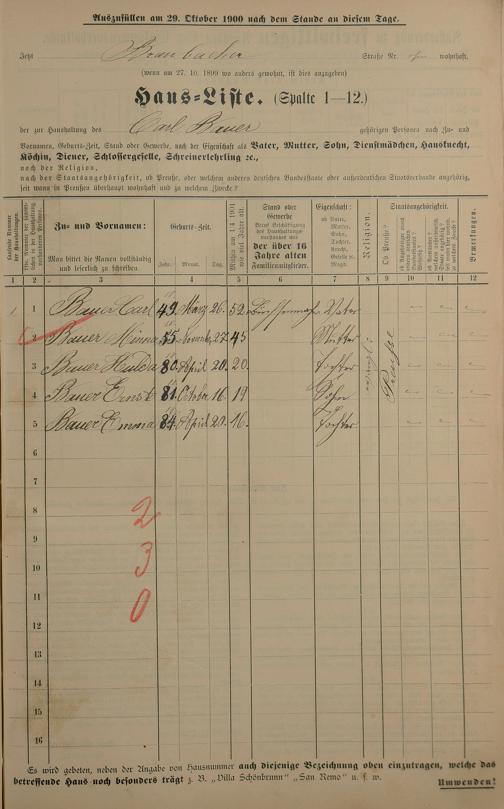 Auszufüllen am 29. Oktober 1900 nach dem Stande an diesem Tage.
Jetzt Braubacher Straße Nr. wohnhaft,
(wenn am 27. 10. 1899 wo anders gewohnt, ist dies anzugeben)
Haus-Liste. (Spalte 1—12.)
der zur Haushaltung des Carl Bauer gehörigen Personen nach Zu- und
Vornamen, Geburts-Zeit, Stand oder Gewerbe, nach der Eigenschaft als Vater, Mutter, Sohn, Dienstmädchen, Hausknecht,
Köchin, Diener, Schlossergeselle, Schreinerlehrling ꝛc.,
nach der Religion,
nach der Staatsangehörigkeit, ob Preuße, oder welchem anderen deutschen Bundesstaate oder außerdeutschen Staatsverbande angehörig,
seit wann in Preußen überhaupt wohnhaft und zu welchem Zwecke?
Zu- und Vornamen:
Man bittet die Namen vollständig
und leserlich zu schreiben.
Geburts-Zeit.
Jahr. Monat. Tag.
Mithin am 1/4 1901
wie viel Jahre alt.
Stand oder
Gewerbe
der über 16
Jahre alten
Familienmitglieder.
Eigenschaft:
ob Vater,
Mutter,
Sohn,
Tochter,
Knecht,
Geselle o.
Magd.
Religion.
Staatsangehörigkeit.
Ob Preuße?
Bemerkungen.
1 2 3 4 5 6 7 8 9 10 11 12
1 1 Bauer Carl 49. März 26. 52. Vater
2 Bauer Minna 55. Novemb. 27. 45 Mutter
3 Bauer Hulda 80. April 20. 20. Tochter
4 Bauer Ernst 81. October 16. 19 Sohn
5 Bauer Emma 84. April 20. 16. Tochter
Preuße
6
7
8 2
9
10 3
11 0
12
13
14
15
16
Es wird gebeten, neben der Angabe von Hausnummer auch diejenige Bezeichnung oben einzutragen, welche das
betreffende Haus noch besonders trägt z. B. „Villa Schönbrunn“ „San Remo“ u. s. w.
Umwenden!